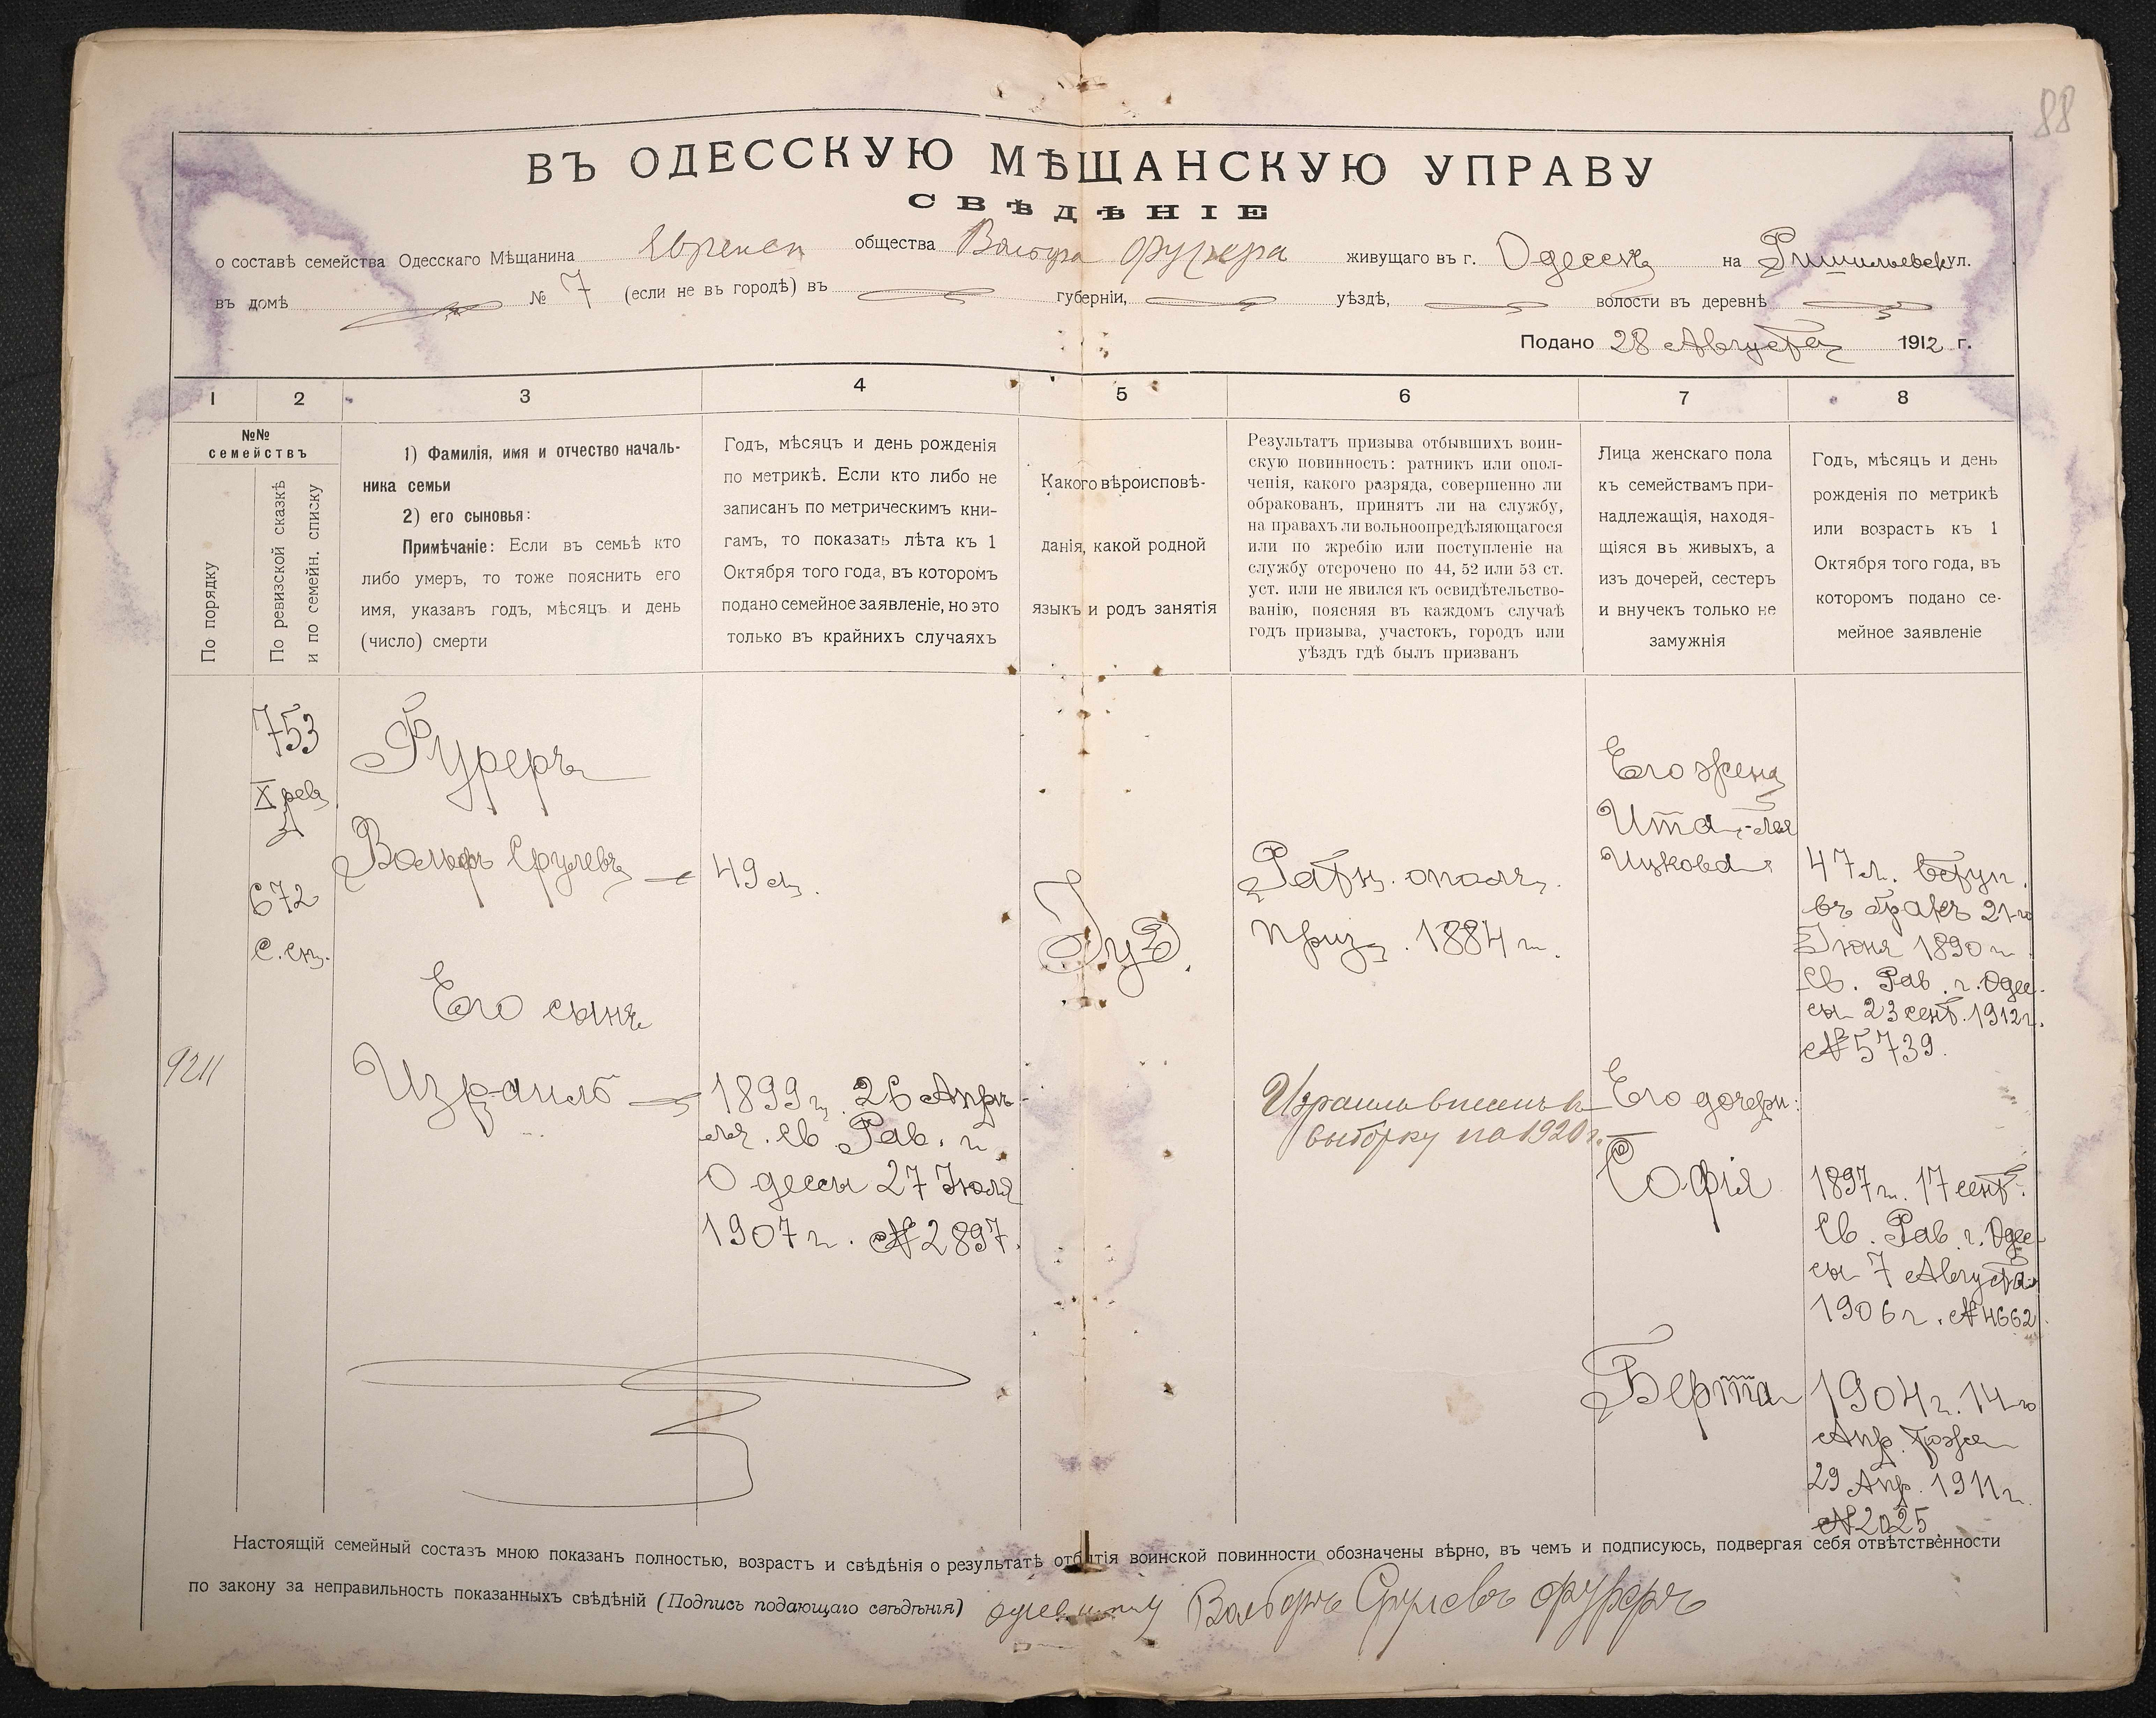 88
ВЪ ОДЕССКУЮ МѢЩАНСКУЮ УПРАВУ
СВѢДѢНІЕ
о составѣ семейства Одесскаго Мѣщанина Еврейск общества Вольфа Фурера живущаго въ г. Одессѣ на Ришильевск ул.
въ домѣ № 7 (если не въ городѣ) въ губерніи, уѣздѣ, волости въ деревнѣ
Подано 28 Августа 1912 г.
1 2 3 4 5 6 7 8
№№
семействъ
По порядку
По ревизской сказкѣ
и по семейн. списку
1) Фамилія, имя и отчество началь-
ника семьи
2) его сыновья:
Примѣчаніе: Если въ семьѣ кто
либо умеръ, то тоже пояснить его
имя, указавъ годъ, мѣсяцъ и день
(число) смерти
Годъ, мѣсяцъ и день рожденія
по метрикѣ. Если кто либо не
записанъ по метрическимъ кни-
гамъ, то показать лѣта къ 1
Октября того года, въ которомъ
подано семейное заявленіе, но это
только въ крайнихъ случаяхъ
Какого вѣроисповѣ-
данія, какой родной
языкъ и родъ занятія
Результатъ призыва отбывшихъ воин-
скую повинность: ратникъ или опол-
ченія, какого разряда, совершенно ли
обракованъ, принятъ ли на службу,
на правахъ ли вольноопредѣляющагося
или по жребію или поступленіе на
службу отсрочено по 44, 52 или 53 ст.
уст. или не явился къ освидѣтельство-
ванію, поясняя въ каждомъ случаѣ
годъ призыва, участокъ, городъ или
уѣздъ гдѣ былъ призванъ
Лица женскаго пола
къ семействамъ при-
надлежащія, находя-
щіяся въ живыхъ, а
изъ дочерей, сестеръ
и внучекъ только не
замужнія
Годъ, мѣсяцъ и день
рожденія по метрикѣ
или возрастъ къ 1
Октября того года, въ
которомъ подано се-
мейное заявленіе
753
X рев
672
с. сп.
9211
Фуреръ
Вольфъ Срулевъ
Его сынъ
Израиль
49 л.
1899 г. 26 Апрѣ-
ля. Св. Рав. г.
Одессы 27 Іюля
1907 г. № 2897.
Іуд.
Ратн. ополч.
приз. 1884 г.
Израиль внесенъ въ
выборку на 1920 г.
Его жена
Ита-Лея
Ицкова
Его дочери:
Софія
Берта
47 л. вступ.
въ бракъ 21-го
Іюня 1890 г.
Св. Рав. г. Одес-
сы 23 сент. 1912 г.
№ 5739.
1897 г. 17 сент.
Св. Рав. г. Одес-
сы 7 Августа
1906 г. № 4662.
1904 г. 14-го
Апр. тоже
29 Апр. 1911 г.
№ 2025
Настоящій семейный составъ мною показанъ полностью, возрастъ и свѣдѣнія о результатѣ отбытія воинской повинности обозначены вѣрно, въ чемъ и подписуюсь, подвергая себя отвѣтственности
по закону за неправильность показанныхъ свѣдѣній (Подпись подающаго свѣдѣнія) Вольфъ Срулевъ Фуреръ